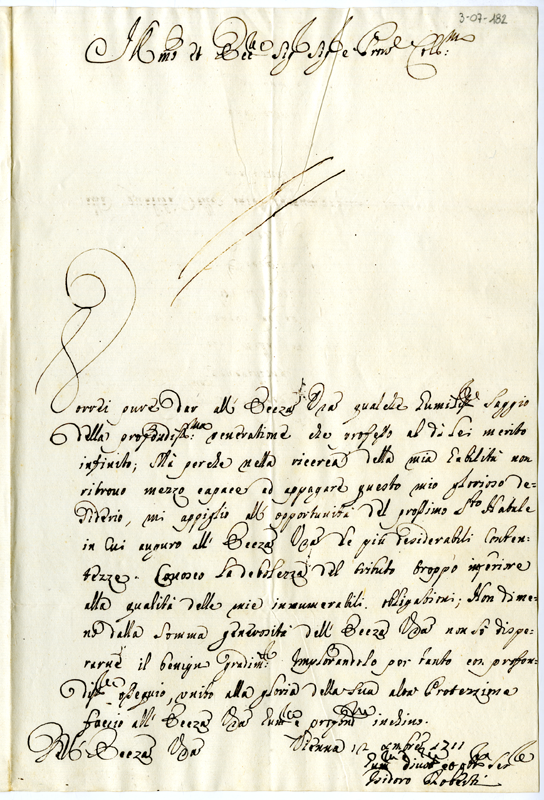 3-07-182
Ill.mo et Ecc.mo Sig.r Sig.r e Pron.e Coll.mo
Vorrei pure dar all' Eccza Vra qualche humiliss.o Saggio
della profondiss.ma veneratione che professo al di Lei merito
infinito; Mà perche nella ricerca della mia habilità non
ritrovo mezzo capace ad appagare questo mio glorioso de=
siderio, mi appiglio all' opportunità del prossimo S.to Natale
in cui auguro all' Eccza Vra le più desiderabili Conten=
tezze. Conosco la debolezza del tributo troppo inferiore
alla qualità delle mie innumerabili obligationi; Non dime=
no dalla somma generosità dell' Eccza Vra non sò dispe=
rarne il benign gradim.to Implorandolo per tanto con profon=
diss.o ossequio, unito alla gloria della sua alta Protezzione
faccio all' Eccza Vra hum.e e profon.mo inchino.
Di V. Eccza Vra Vienna 12 Xmbre 1711
Hum.o Divot.o et obl.o Ser.e
Isidoro Roberti